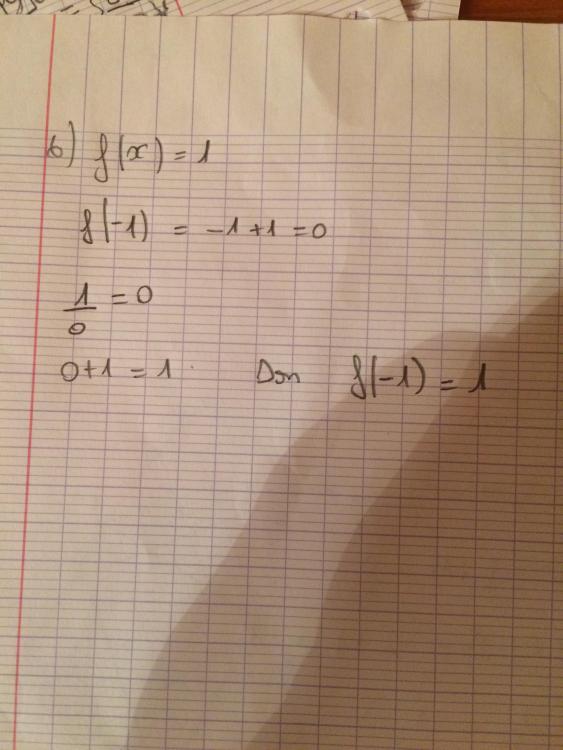 6) f(x) = 1
f(-1) = -1+1 = 0
1/0 = 0
0+1 = 1. Don f(-1) = 1